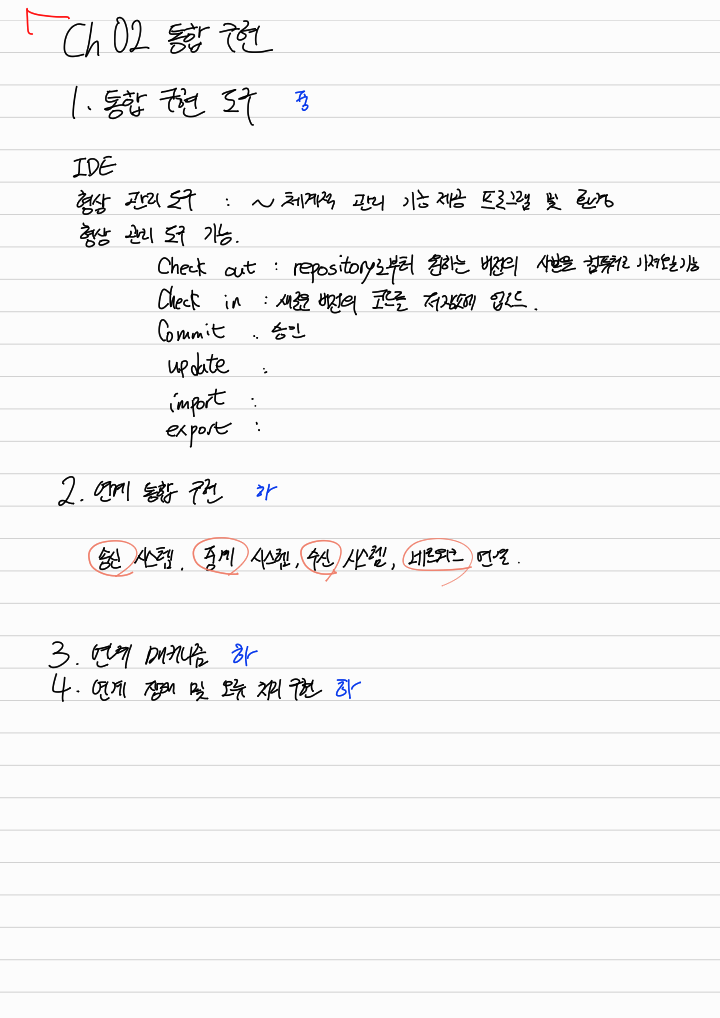 Ch 02 통합 구현
1. 통합 구현 도구 중
IDE
형상 관리 도구 : ~ 체계적 관리 기능 제공 프로그램 및 환경
형상 관리 도구 기능.
Check out : repository로부터 원하는 버전의 사본을 컴퓨터로 가져오는 기능
Check in : 새로운 버전의 코드를 저장소에 업로드.
Commit : 승인
update :
import :
export :
2. 연계 통합 구현 하
송신 시스템, 중계 시스템, 수신 시스템, 네트워크 연결.
3. 연계 매커니즘 하
4. 연계 장애 및 오류 처리 구현 하